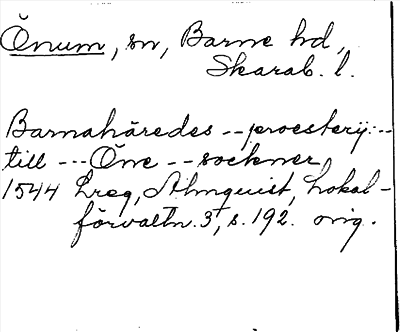 Önum, sn, Barne hd,
Skarab. l.
Barnahäredes -- proesterij ---
till --- Öne -- sockner
1544 Lreg, Almquist, Lokal-
förvaltn. 3, s. 192. orig.